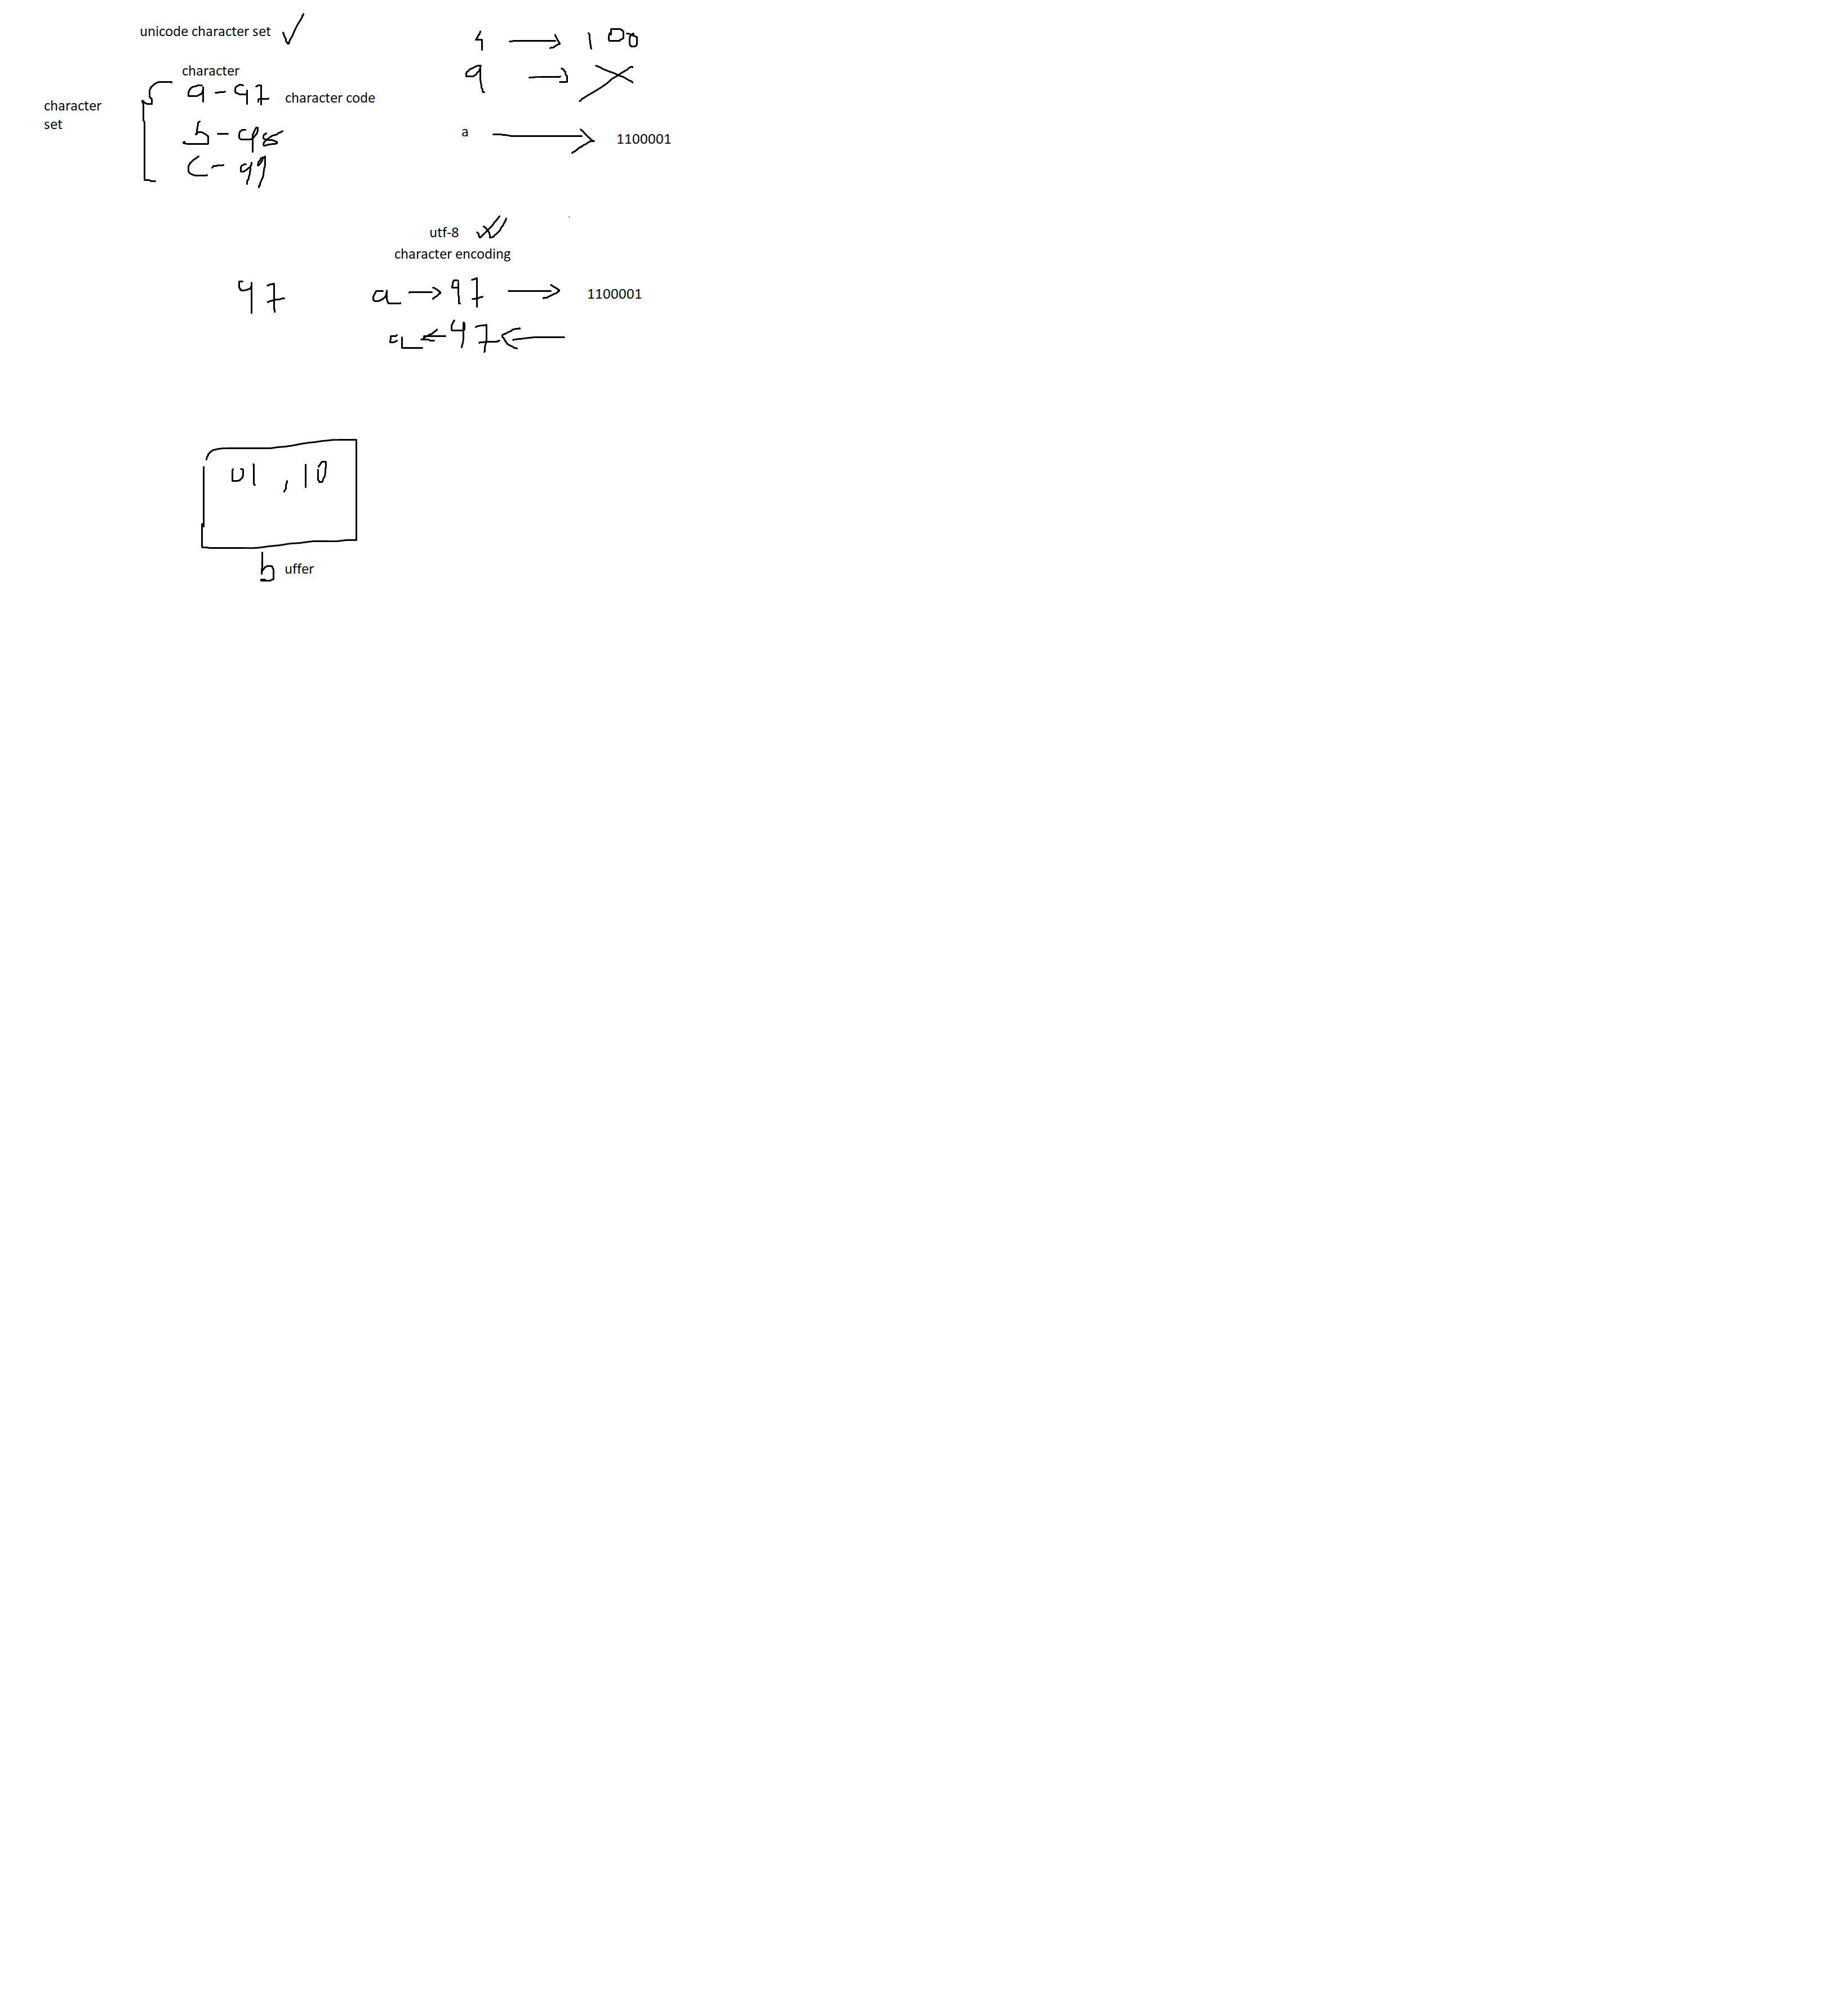 unicode character set ✓
character
a - 97 character code
character
set
b - 98
c - 99
4 → 100
a →
a → 1100001
utf-8
character encoding
97
a → 97 → 1100001
a ← 97 ←
01 , 10
buffer